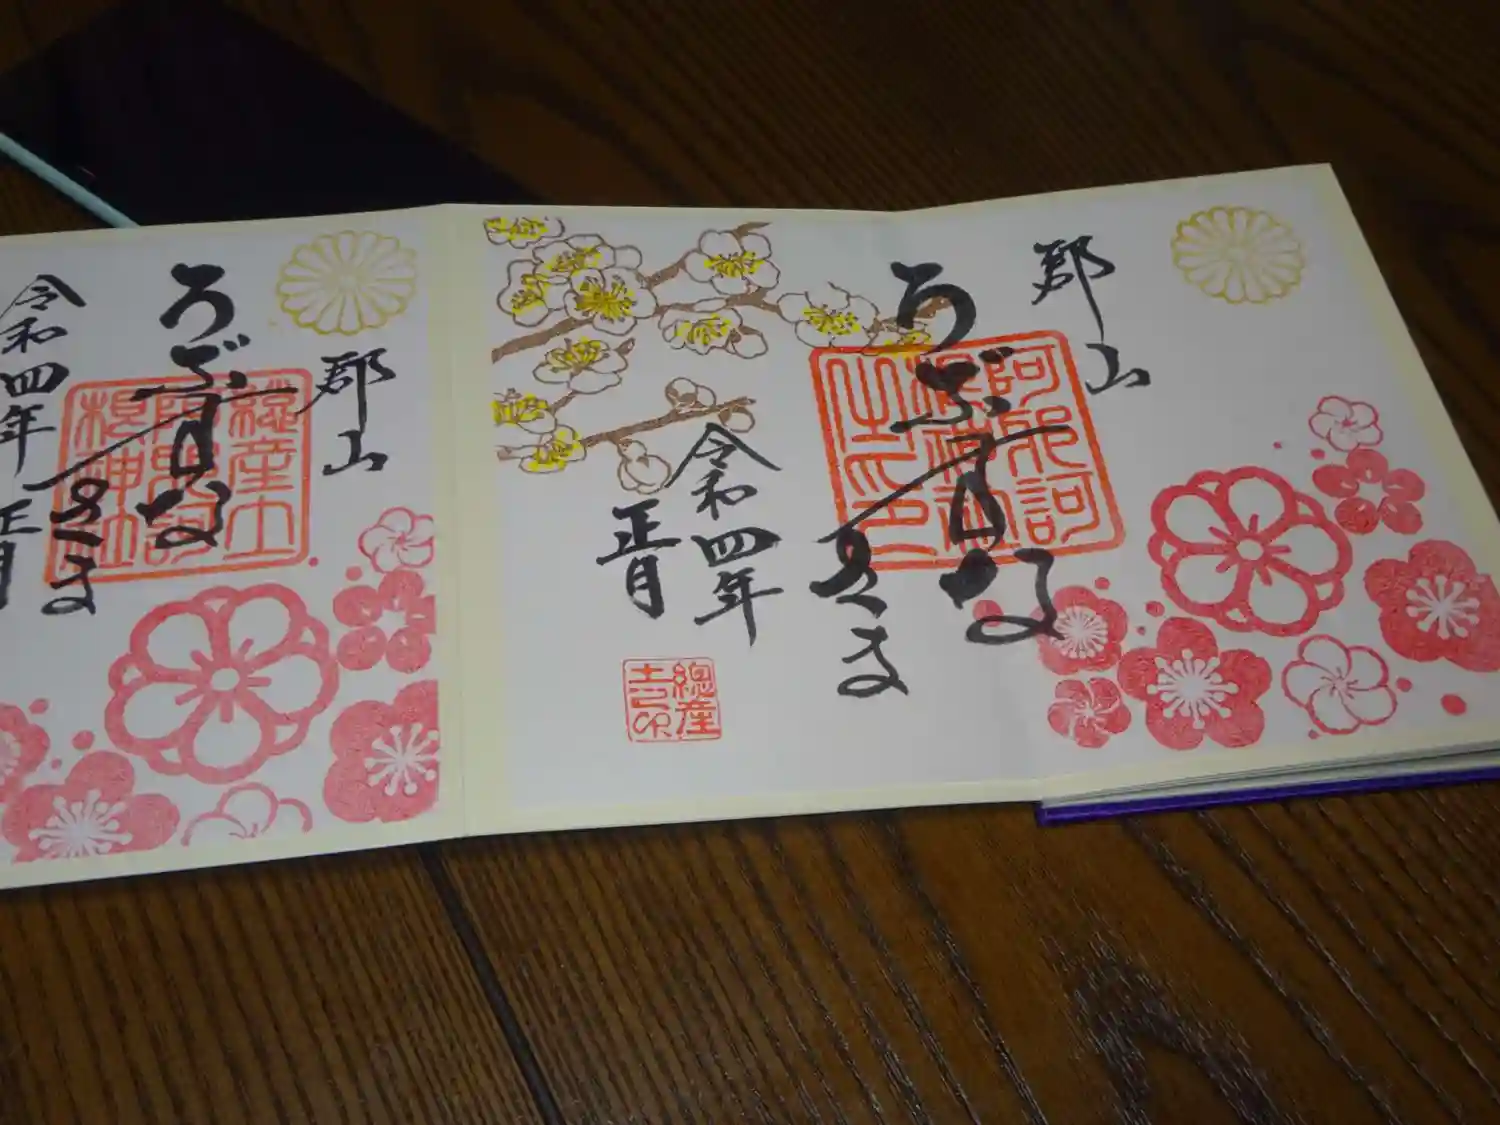 郡山
うぶすな
さま
阿邪訶
根神社
之印
令和四年
正月
總産
土印
郡山
うぶすな
さま
総産土
阿邪訶
根神社
令和四年
正月